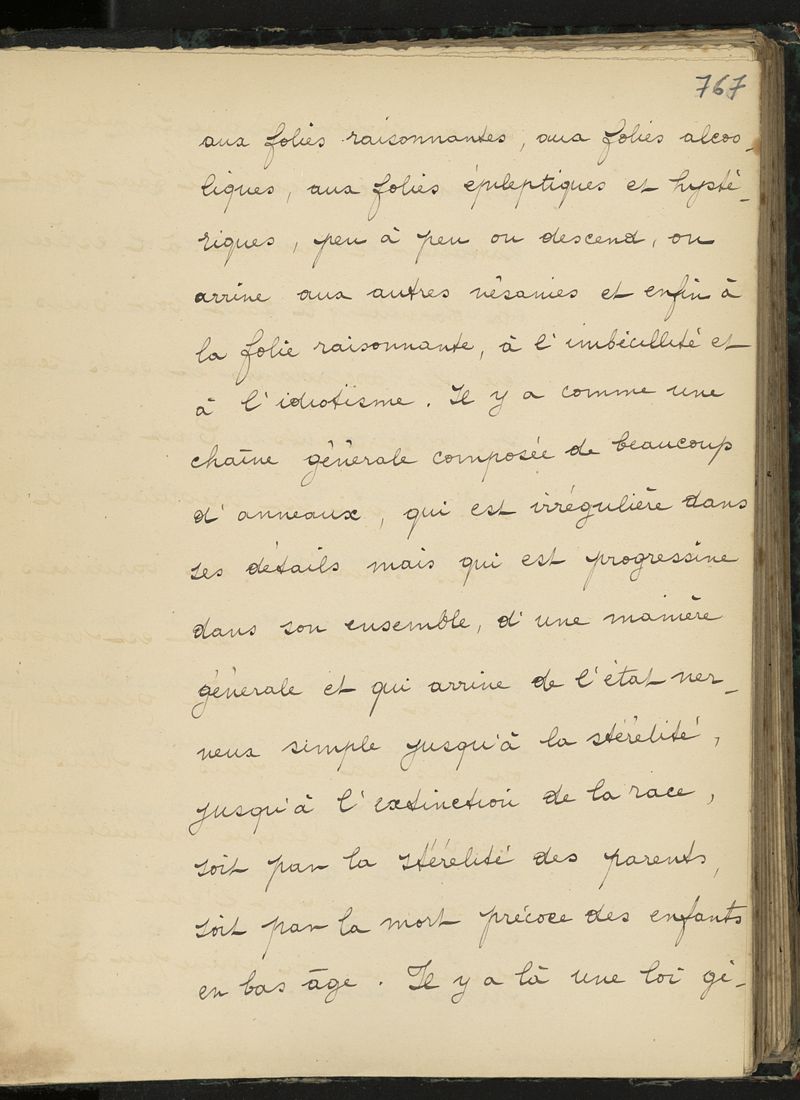 767
aux folies raisonnantes, aux folies alcoo-
liques, aux folies épileptiques et hysté-
riques, peu à peu on descend, on
arrive aux autres vésanies et enfin à
la folie raisonnante, à l'imbécillité et
à l'idiotïsme. Il y a comme une
chaîne générale composée de beaucoup
d'anneaux, qui est irrégulière dans
ses détails mais qui est progressive
dans son ensemble, d'une manière
générale et qui arrive de l'état ner-
veux simple jusqu'à la stérélité,
jusqu'à l'extinction de la race,
soit par la stérélité des parents,
soit par la mort précoce des enfants
en bas âge. Il y a là une loi gé-